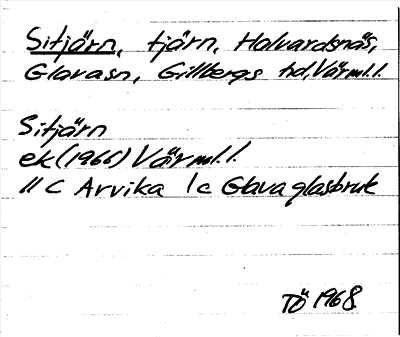 Sitjärn, tjärn, Halvardsnäs,
Glavasn, Gillbergs hd, Värml.l.
Sitjärn
ek (1966) Värml.l.
11 C Arvika 1c Glava glasbruk
TÖ 1968